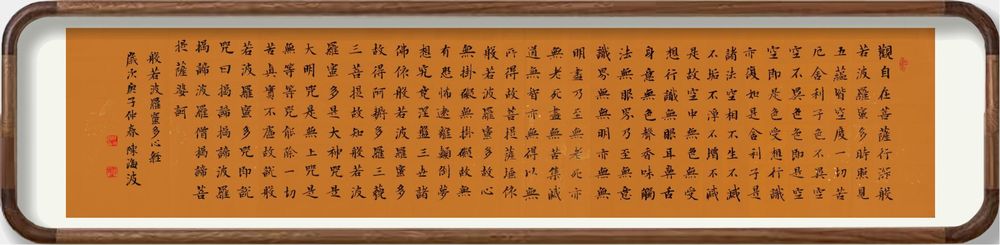 觀自在菩薩行深般
若波羅蜜多時照見
五蘊皆空度一切苦
厄舍利子色不異空
空不異色色即是空
空即是色受想行識
亦復如是舍利子是
諸法空相不生不滅
不垢不淨不增不減
是故空中無色無受
想行識無眼耳鼻舌
身意無色聲香味觸
法無眼界乃至無意
識界無無明亦無無
明盡乃至無老死亦
無老死盡無苦集滅
道無智亦無得以無
所得故菩提薩埵依
般若波羅蜜多故心
無掛礙無掛礙故無
有恐怖遠離顛倒夢
想究竟涅槃三世諸
佛依般若波羅蜜多
故得阿耨多羅三藐
三菩提故知般若波
羅蜜多是大神咒是
大明咒是無上咒是
無等等咒能除一切
苦真實不虛故說般
若波羅蜜多咒即說
咒曰揭諦揭諦波羅
揭諦波羅僧揭諦菩
提薩婆訶
般若波羅蜜多心經
歲次庚子仲春 陳海波